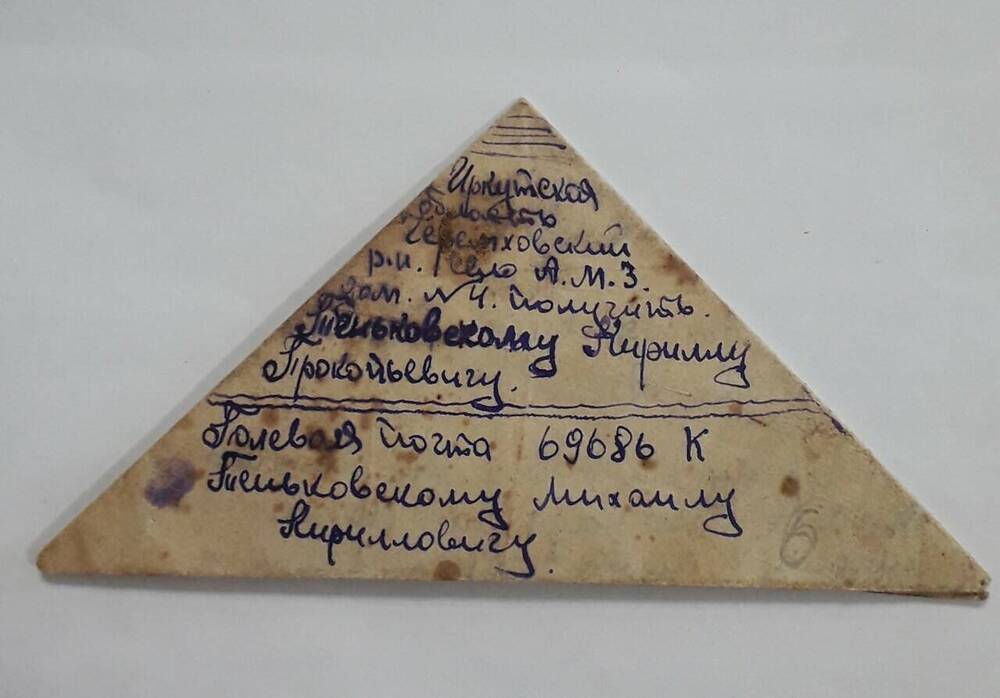 Иркутская
область
Черемховский
р.н. село А.М.З.
дом. №4. получить.
Теньковскому Кириллу
Прокопьевичу.
Полевая почта 69686 К
Теньковскому Михаилу
Кирилловичу.
6